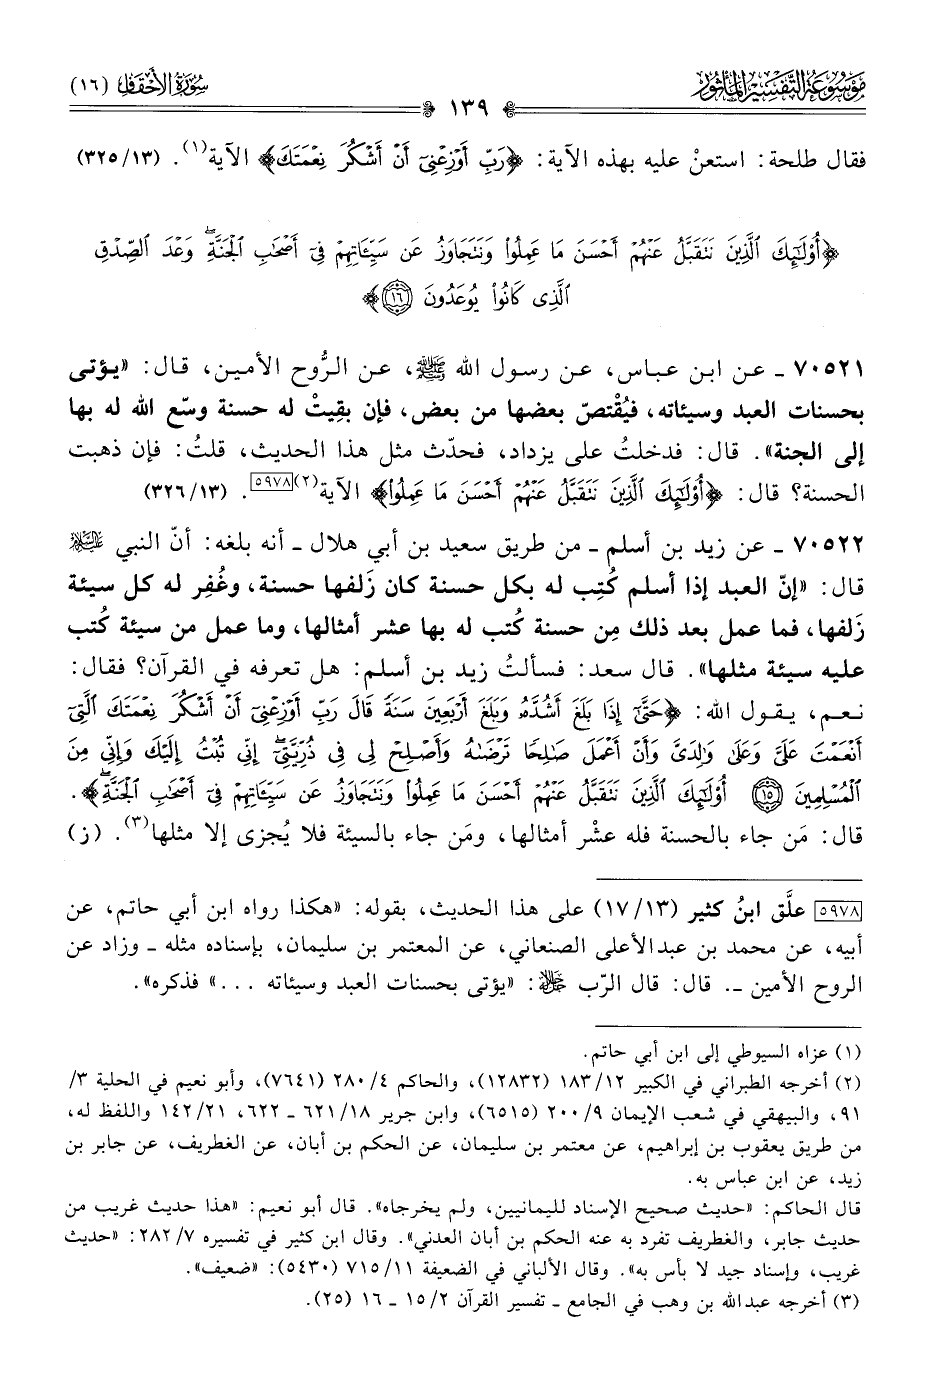 موسوعة التفسير المأثور
سورة الأحقاف (١٦)
١٣٩
فقال طلحة: استعنْ عليه بهذه الآية: ﴿رَبِّ أَوْزِعْنِىٓ أَنْ أَشْكُرَ نِعْمَتَكَ﴾ الآية(١). (١٣/ ٣٢٥)
﴿أُو۟لَـٰٓئِكَ ٱلَّذِينَ نَتَقَبَّلُ عَنْهُمْ أَحْسَنَ مَا عَمِلُوا۟ وَنَتَجَاوَزُ عَن سَيِّـَٔاتِهِمْ فِىٓ أَصْحَـٰبِ ٱلْجَنَّةِ ۖ وَعْدَ ٱلصِّدْقِ
ٱلَّذِى كَانُوا۟ يُوعَدُونَ ١٦﴾
٧٠٥٢١ ـ عن ابن عباس، عن رسول الله ﷺ، عن الرُّوح الأمين، قال: «يؤتى
بحسنات العبد وسيئاته، فيُقْتصّ بعضها من بعض، فإن بقيتْ له حسنة وسّع الله له بها
إلى الجنة». قال: فدخلتُ على يزداد، فحدّث مثل هذا الحديث، قلتُ: فإن ذهبت
الحسنة؟ قال: ﴿أُو۟لَـٰٓئِكَ ٱلَّذِينَ نَتَقَبَّلُ عَنْهُمْ أَحْسَنَ مَا عَمِلُوا۟﴾ الآية(٢)[٥٩٧٨]. (١٣/ ٣٢٦)
٧٠٥٢٢ ـ عن زيد بن أسلم ـ من طريق سعيد بن أبي هلال ـ أنه بلغه: أنّ النبي ﵇
قال: «إنّ العبد إذا أسلم كُتِب له بكل حسنة كان زَلفها حسنة، وغُفِر له كل سيئة
زَلفها، فما عمل بعد ذلك مِن حسنة كُتب له بها عشر أمثالها، وما عمل من سيئة كُتب
عليه سيئة مثلها». قال سعد: فسألتُ زيد بن أسلم: هل تعرفه في القرآن؟ فقال:
نعم، يقول الله: ﴿حَتَّىٰٓ إِذَا بَلَغَ أَشُدَّهُۥ وَبَلَغَ أَرْبَعِينَ سَنَةً قَالَ رَبِّ أَوْزِعْنِىٓ أَنْ أَشْكُرَ نِعْمَتَكَ ٱلَّتِىٓ
أَنْعَمْتَ عَلَىَّ وَعَلَىٰ وَٰلِدَىَّ وَأَنْ أَعْمَلَ صَـٰلِحًا تَرْضَىٰهُ وَأَصْلِحْ لِى فِى ذُرِّيَّتِىٓ ۖ إِنِّى تُبْتُ إِلَيْكَ وَإِنِّى مِنَ
ٱلْمُسْلِمِينَ ١٥ أُو۟لَـٰٓئِكَ ٱلَّذِينَ نَتَقَبَّلُ عَنْهُمْ أَحْسَنَ مَا عَمِلُوا۟ وَنَتَجَاوَزُ عَن سَيِّـَٔاتِهِمْ فِىٓ أَصْحَـٰبِ ٱلْجَنَّةِ ۖ﴾.
قال: مَن جاء بالحسنة فله عشْر أمثالها، ومَن جاء بالسيئة فلا يُجزى إلا مثلها(٣). (ز)
[٥٩٧٨] علَّق ابنُ كثير (١٣/ ١٧) على هذا الحديث، بقوله: «هكذا رواه ابن أبي حاتم، عن
أبيه، عن محمد بن عبدالأعلى الصنعاني، عن المعتمر بن سليمان، بإسناده مثله ـ وزاد عن
الروح الأمين ـ. قال: قال الرّب ﷻ: «يؤتى بحسنات العبد وسيئاته ...» فذكره».
(١) عزاه السيوطي إلى ابن أبي حاتم.
(٢) أخرجه الطبراني في الكبير ١٢/ ١٨٣ (١٢٨٣٢)، والحاكم ٤/ ٢٨٠ (٧٦٤١)، وأبو نعيم في الحلية ٣/
٩١، والبيهقي في شعب الإيمان ٩/ ٢٠٠ (٦٥١٥)، وابن جرير ١٨/ ٦٢١ ـ ٦٢٢، ٢١/ ١٤٢ واللفظ له،
من طريق يعقوب بن إبراهيم، عن معتمر بن سليمان، عن الحكم بن أبان، عن الغطريف، عن جابر بن
زيد، عن ابن عباس به.
قال الحاكم: «حديث صحيح الإسناد لليمانيين، ولم يخرجاه». قال أبو نعيم: «هذا حديث غريب من
حديث جابر، والغطريف تفرد به عنه الحكم بن أبان العدني». وقال ابن كثير في تفسيره ٧/ ٢٨٢: «حديث
غريب، وإسناد جيد لا بأس به». وقال الألباني في الضعيفة ١١/ ٧١٥ (٥٤٣٠): «ضعيف».
(٣) أخرجه عبدالله بن وهب في الجامع ـ تفسير القرآن ٢/ ١٥ ـ ١٦ (٢٥).